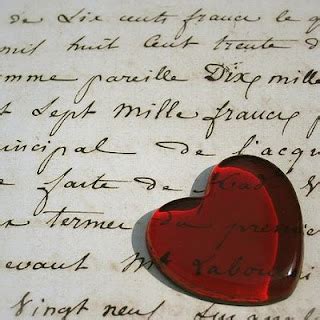 de Dix cents francs le q
mil huit cent trente d
omme pareille Dix mille
t Sept mille francs p
incipal de l'acqu
e faite de
x termes du premier
devant Me Labou
Vingt neuf